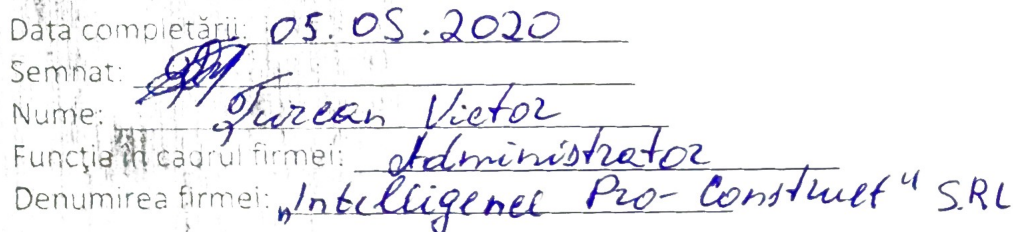 Data completării: 05.05.2020
Semnat:
Nume: Țurcan Victor
Funcția în cadrul firmei: Administrator
Denumirea firmei: „Intelligence Pro-Construct" S.R.L